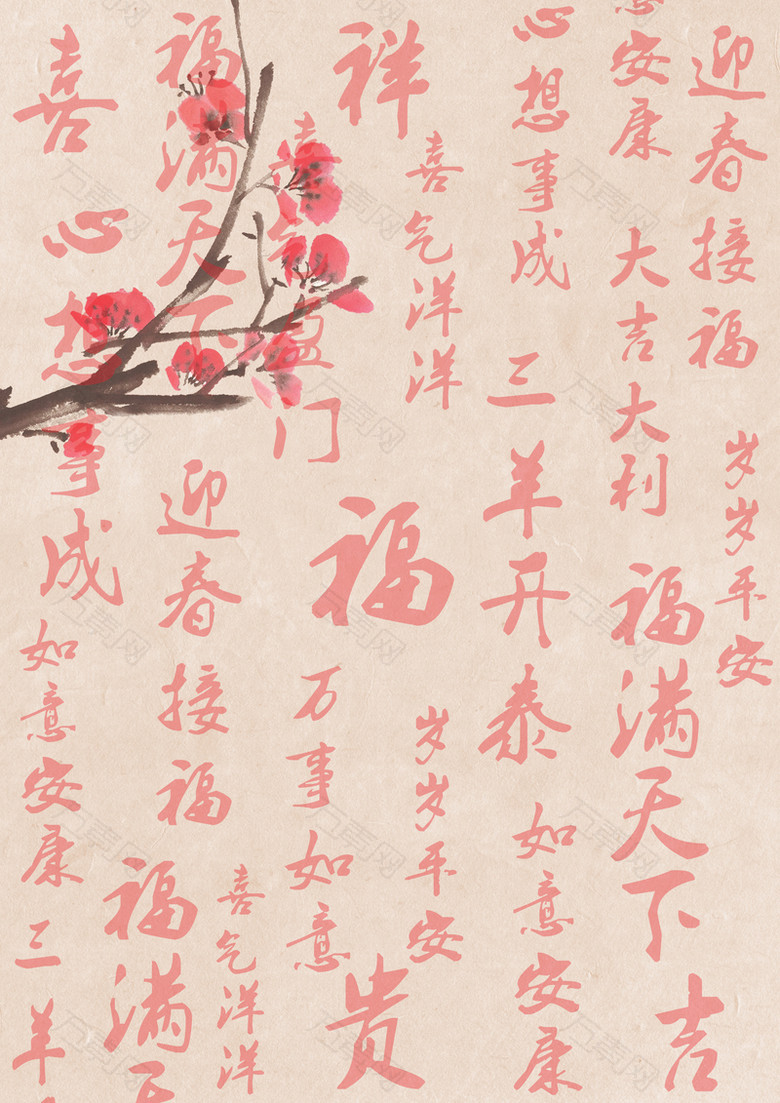 迎春接福
岁岁平安
意安康
大吉大利
福满天下
吉
心想事成
三羊开泰
如意安康
喜气洋洋
岁岁平安
祥
福
贵
喜气盈门
万事如意
福满天下
迎春接福
喜气洋洋
福满天
喜
心想事成
如意安康
三羊